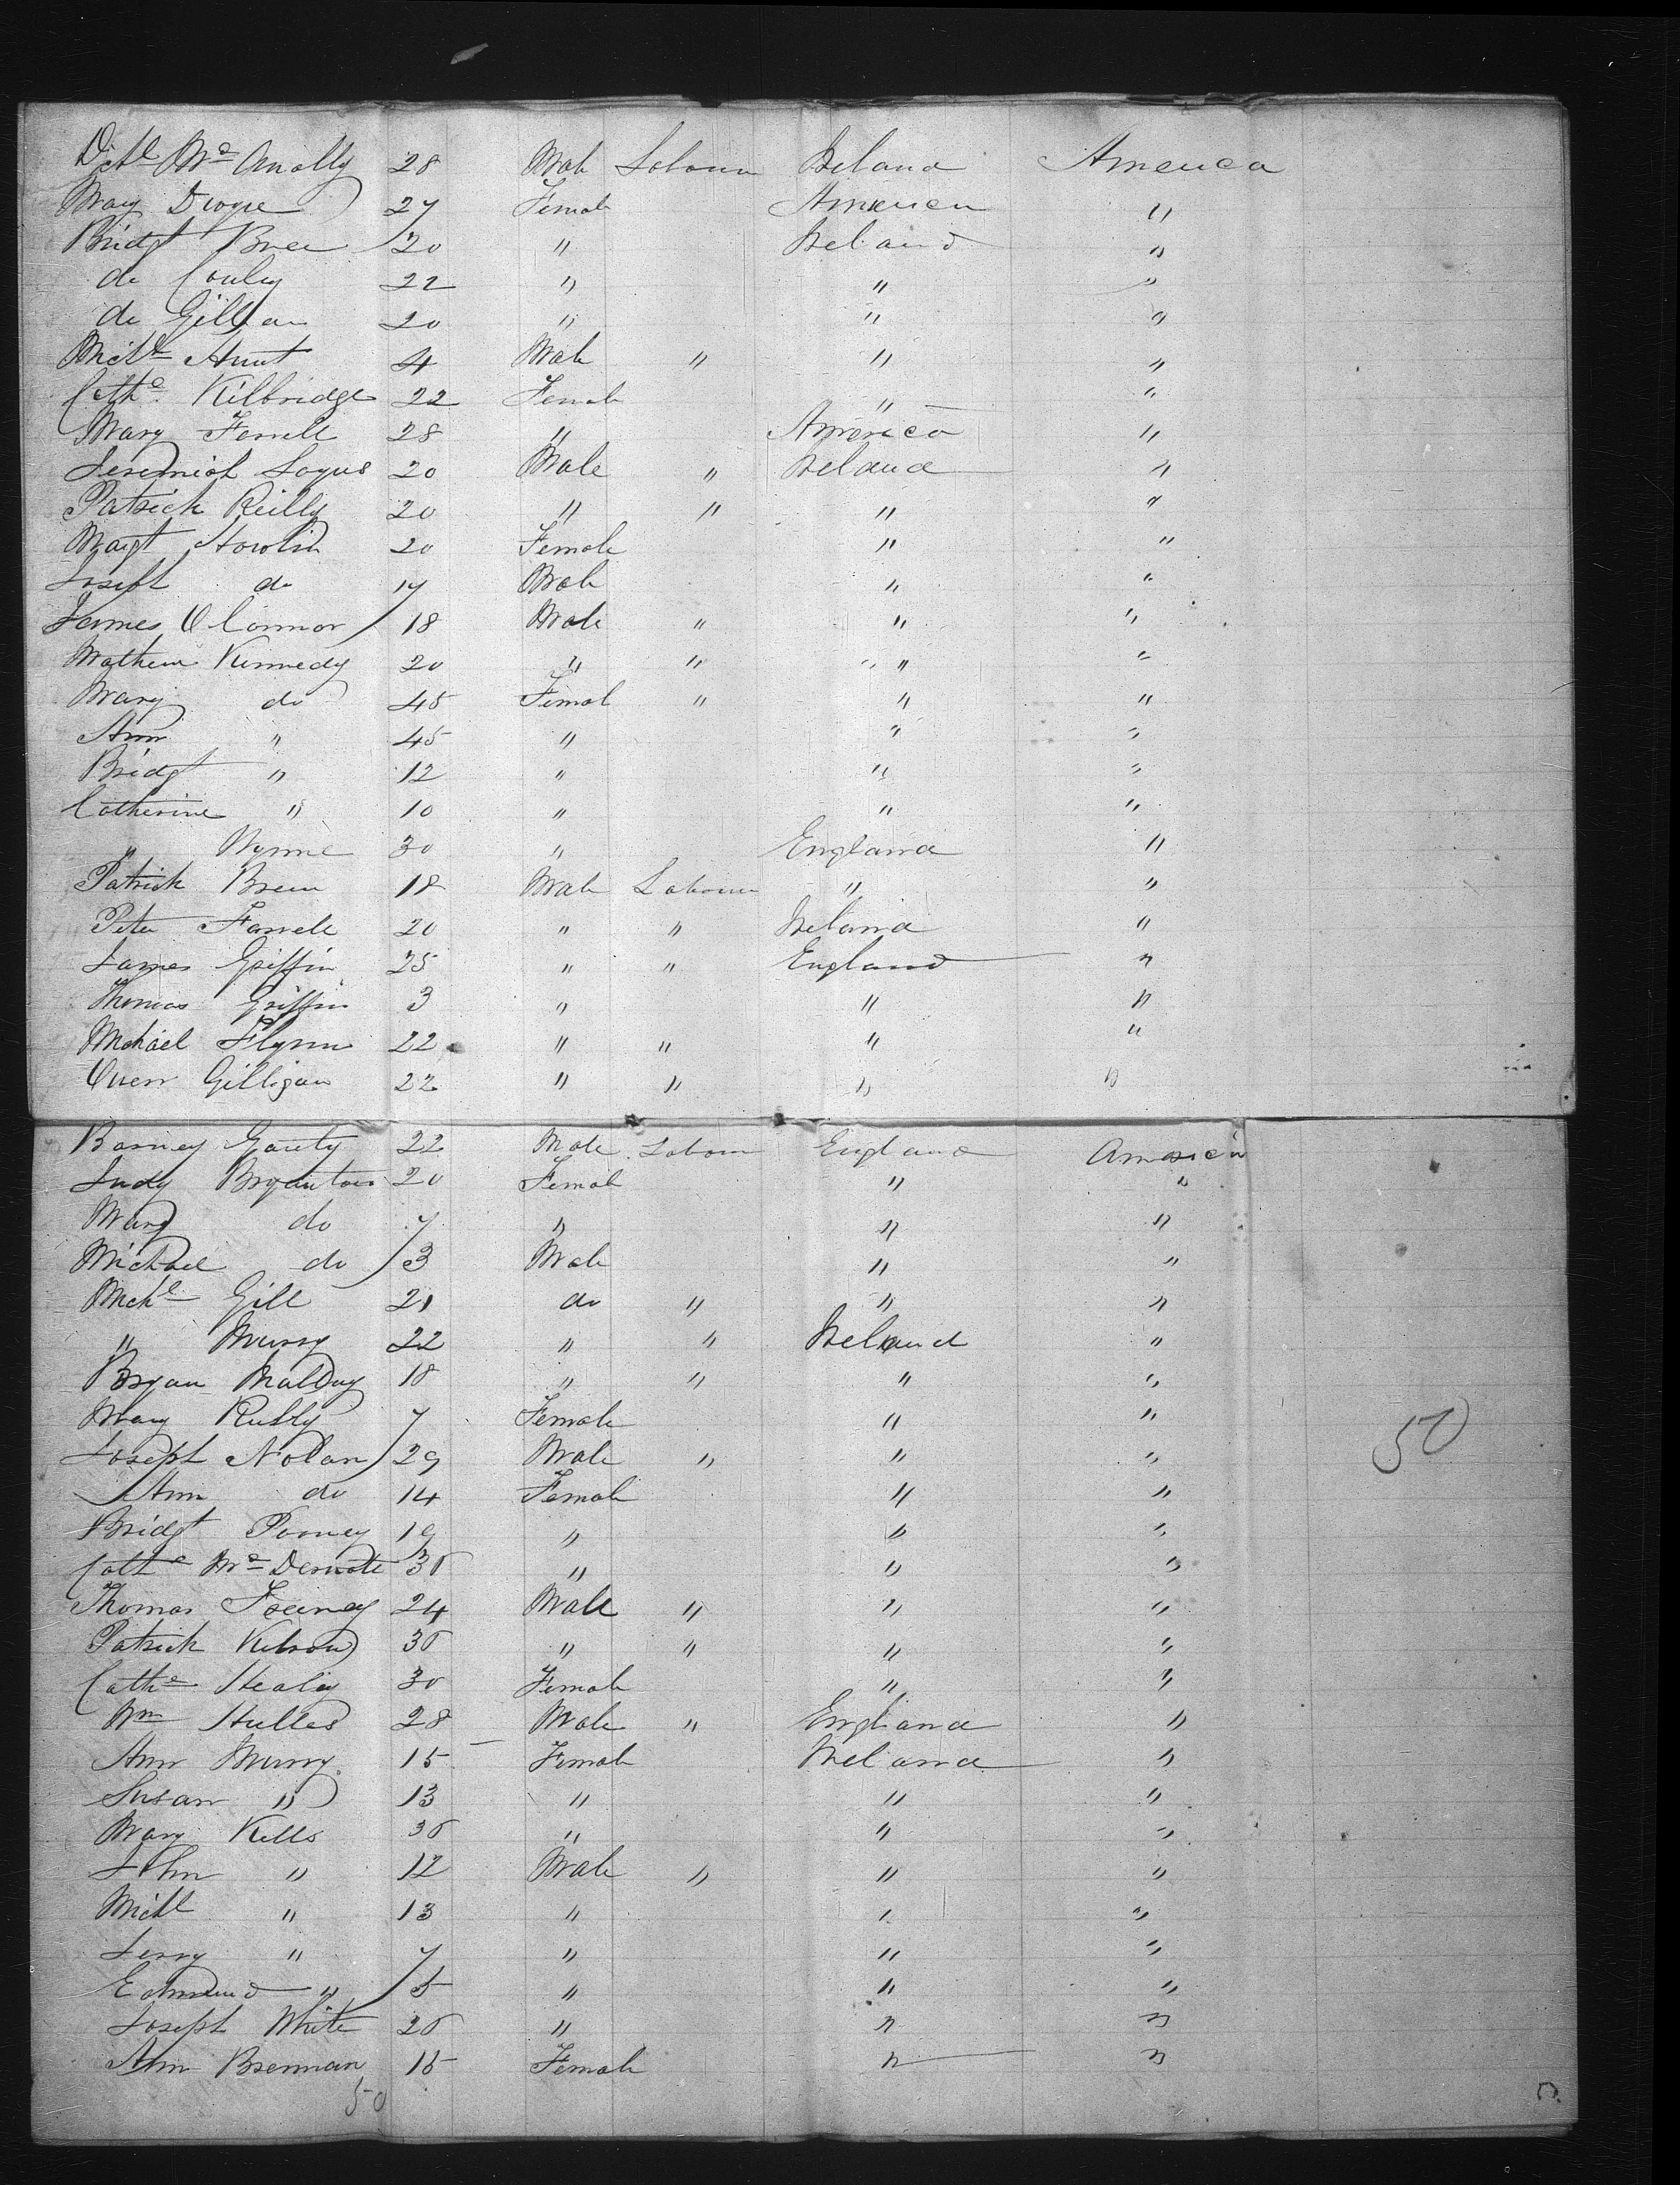 Mc Anally 28 Male Labour Ireland America
Mary Dwyre 27 Female America "
Bridgt Bree 20 " Ireland "
do Conley 22 " " "
do Gillan 20 " " "
Michl Hunt 4 Male " " "
Cathe Kilbridge 22 Female " "
Mary Farrell 28 " America "
Jeremiah Logus 20 Male " Ireland "
Patrick Reilly 20 " " " "
Margt Howlin 20 Female " "
Joseph do 17 Male " "
James O Connor 18 Male " " "
Mathew Kennedy 20 " " " "
Mary do 45 Femal " " "
Ann " 45 " " "
Bridgt " 12 " " "
Catherine " 10 " " "
" Wynne 30 " England "
Patrick Breen 18 Male Labour " "
Peter Farrell 20 " " Ireland "
James Griffin 25 " " England "
Thomas Griffin 3 " " "
Michael Flynn 22 " " " "
Owen Gilligan 22 " " " "
Barney Garity 22 Male Labour England America
Judy 20 Female " "
Mary do 7 " " "
Michael do 3 Male " "
Michl Gill 21 do " " "
" Murry 22 " " Ireland "
Bryan Malday 18 " " " "
Mary Reilly 7 Female " "
Joseph Nolan 29 Male " " "
Ann do 14 Female " "
Bridgt 19 " " "
Cathe Mc Dermott 30 " " "
Thomas Feeney 24 Male " " "
Patrick 30 " " " "
Cathe Healy 30 Female " "
Wm Hulles 28 Male " England "
Ann Murry 15 Female Ireland "
Susan " 13 " " "
Mary Kells 30 " " "
John " 12 Male " " "
Michl " 13 " " "
Jerry " 7 " " "
Edmund " 5 " " "
Joseph White 20 " " "
Ann Brennan 15 Female " "
50
50